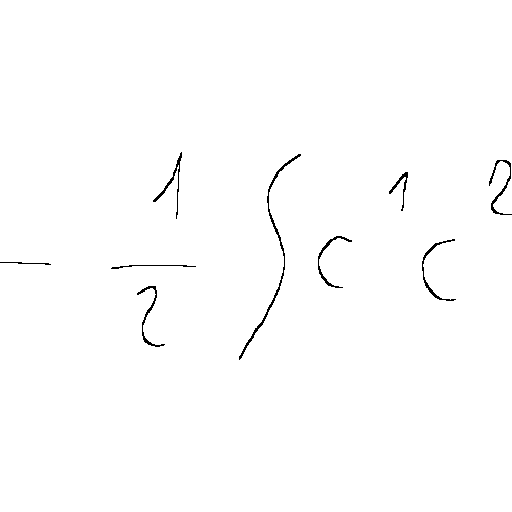 - \frac{1}{2} \int c^1 c^2